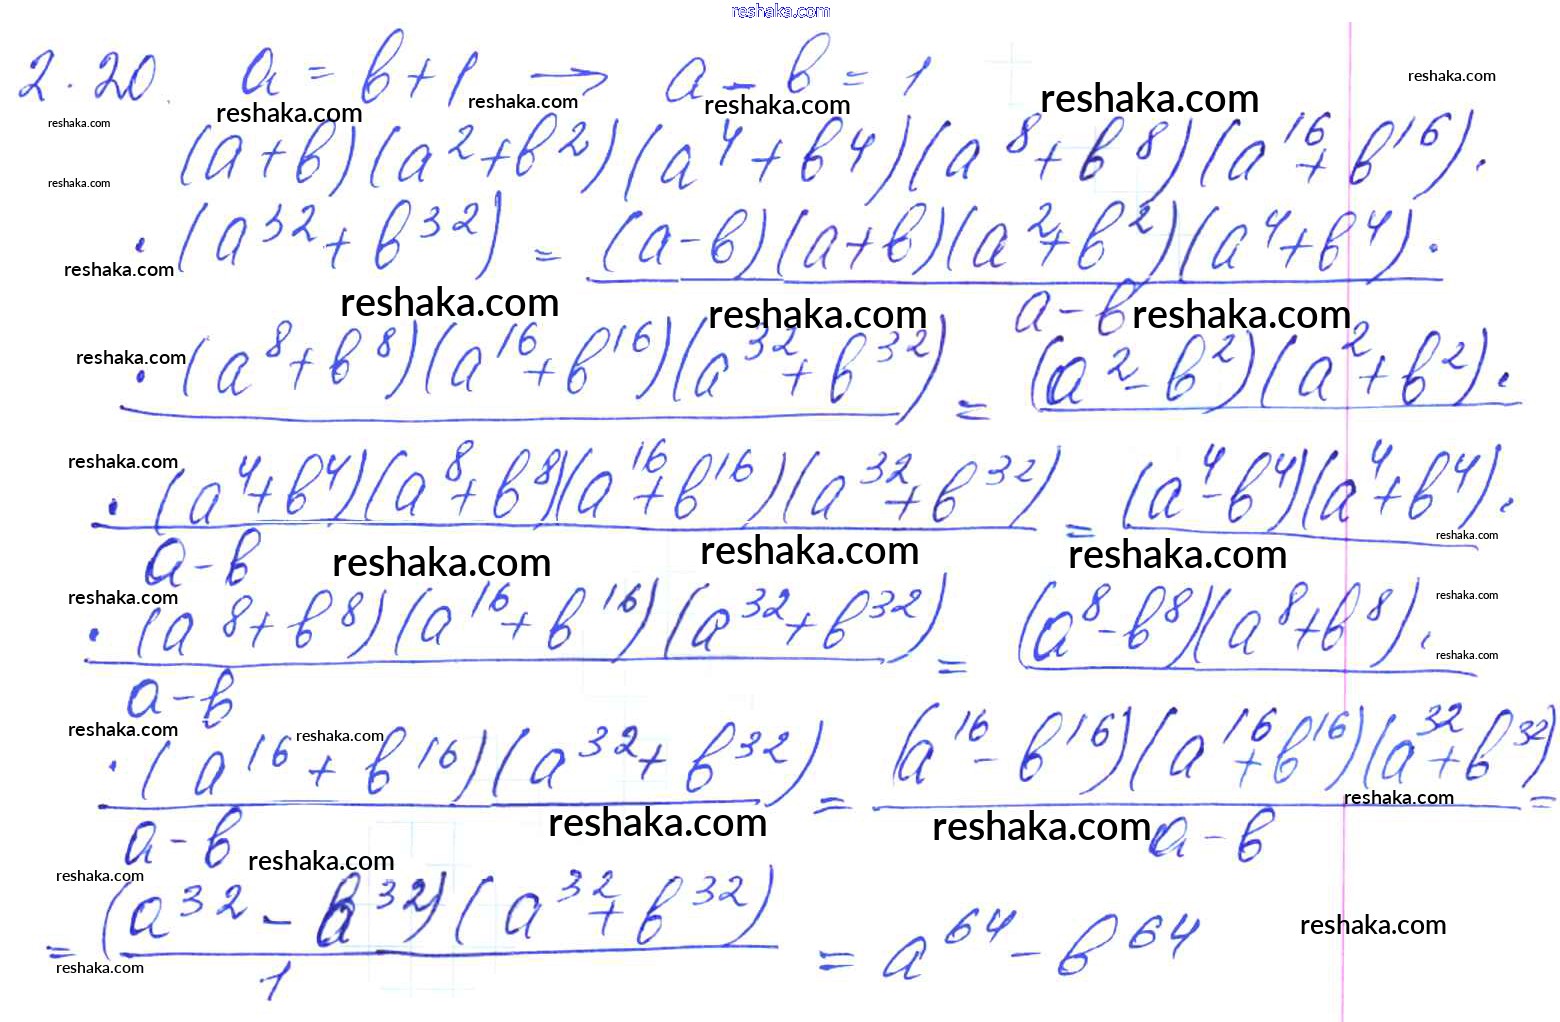 reshaka.com
2.20. a = b + 1 → a - b = 1
reshaka.com reshaka.com reshaka.com reshaka.com reshaka.com reshaka.com
(a + b)(a² + b²)(a⁴ + b⁴)(a⁸ + b⁸)(a¹⁶ + b¹⁶)·
reshaka.com
·(a³² + b³²) = (a - b)(a + b)(a² + b²)(a⁴ + b⁴)·
reshaka.com
a - b
reshaka.com reshaka.com reshaka.com
reshaka.com
·(a⁸ + b⁸)(a¹⁶ + b¹⁶)(a³² + b³²) = (a² - b²)(a² + b²)·
reshaka.com
·(a⁴ + b⁴)(a⁸ + b⁸)(a¹⁶ + b¹⁶)(a³² + b³²) = (a⁴ - b⁴)(a⁴ + b⁴)·
reshaka.com
a - b
reshaka.com reshaka.com reshaka.com
reshaka.com reshaka.com
·(a⁸ + b⁸)(a¹⁶ + b¹⁶)(a³² + b³²) = (a⁸ - b⁸)(a⁸ + b⁸)·
reshaka.com
a - b
reshaka.com reshaka.com
·(a¹⁶ + b¹⁶)(a³² + b³²) = (a¹⁶ - b¹⁶)(a¹⁶ + b¹⁶)(a³² + b³²) =
reshaka.com
a - b a - b
reshaka.com reshaka.com
reshaka.com reshaka.com
= (a³² - b³²)(a³² + b³²) = a⁶⁴ - b⁶⁴
reshaka.com
1
reshaka.com